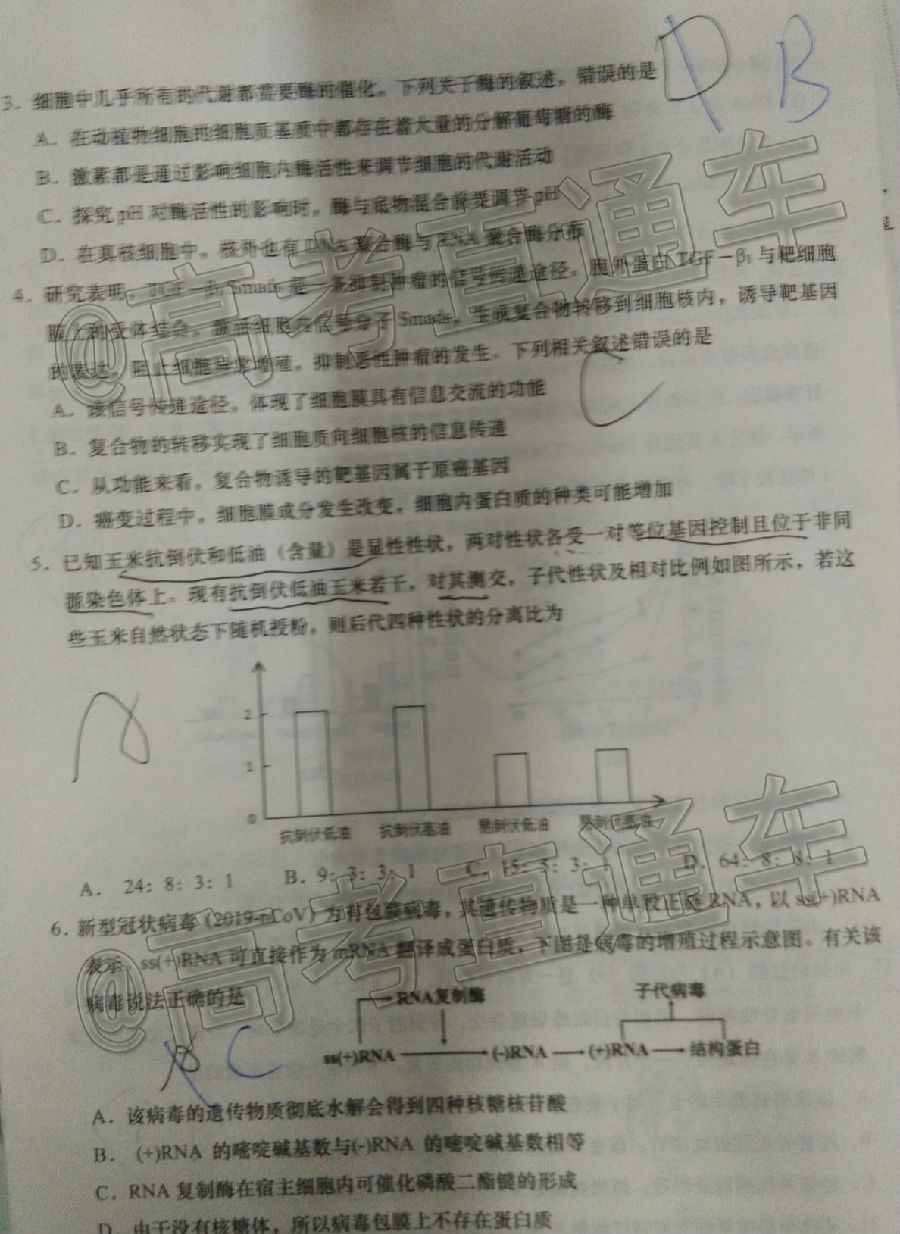 D B
3. 细胞中几乎所有的代谢都需要酶的催化。下列关于酶的叙述，错误的是
A. 在动植物细胞的细胞质基质中都存在着大量的分解葡萄糖的酶
B. 激素都是通过影响细胞内酶活性来调节细胞的代谢活动
C. 探究pH对酶活性的影响时，酶与底物混合前要调节pH
D. 在真核细胞中，核外也有DNA聚合酶与RNA聚合酶分布
4. 研究表明，TGF-β₁ Smads是一条抑制肿瘤的信号传递途径。胞外蛋白TGF-β₁与靶细胞
膜上的受体结合，激活细胞内信号分子Smads，生成复合物转移到细胞核内，诱导靶基因
的表达，阻止细胞异常增殖，抑制恶性肿瘤的发生。下列相关叙述错误的是
C
A. 该信号传递途径，体现了细胞膜具有信息交流的功能
B. 复合物的转移实现了细胞质向细胞核的信息传递
C. 从功能来看，复合物诱导的靶基因属于原癌基因
D. 癌变过程中，细胞膜成分发生改变，细胞内蛋白质的种类可能增加
5. 已知玉米抗倒伏和低油（含量）是显性性状，两对性状各受一对等位基因控制且位于非同
源染色体上。现有抗倒伏低油玉米若干，对其测交，子代性状及相对比例如图所示，若这
些玉米自然状态下随机授粉，则后代四种性状的分离比为
2
1
0
抗倒伏低油 抗倒伏高油 易倒伏低油 易倒伏高油
A. 24: 8: 3: 1 B. 9: 3: 3: 1 C. 15: 5: 3: 1 D. 64: 8: 8: 1
6. 新型冠状病毒（2019-nCoV）为有包膜病毒，其遗传物质是一种单股正链RNA，以ss(+)RNA
表示。ss(+)RNA可直接作为mRNA翻译成蛋白质，下图是病毒的增殖过程示意图。有关该
病毒说法正确的是
C
RNA复制酶 子代病毒
ss(+)RNA (-)RNA (+)RNA 结构蛋白
A. 该病毒的遗传物质彻底水解会得到四种核糖核苷酸
B. (+)RNA 的嘧啶碱基数与(-)RNA 的嘧啶碱基数相等
C. RNA 复制酶在宿主细胞内可催化磷酸二酯键的形成
D. 由于没有核糖体，所以病毒包膜上不存在蛋白质
@高考直通车
@高考直通车